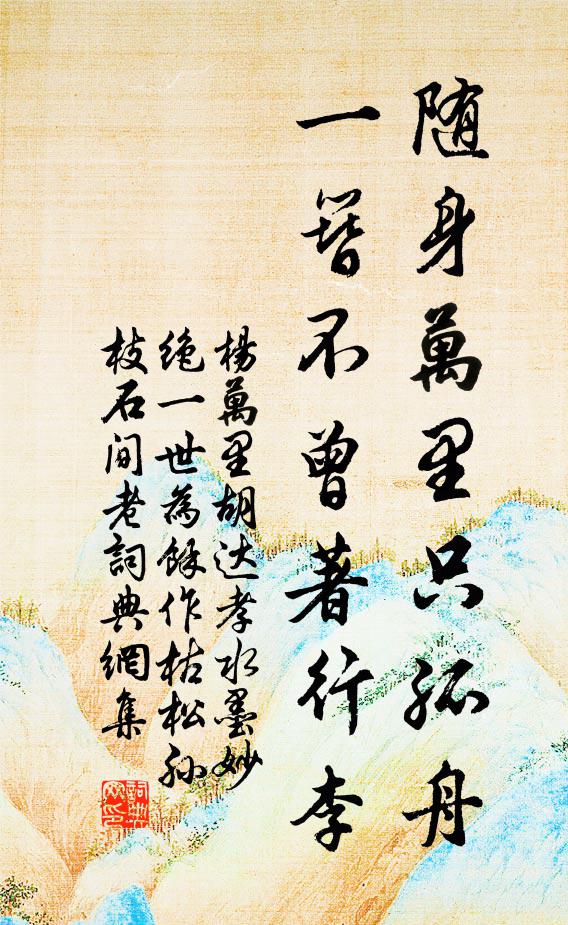 随身萬里只孤舟
一簪不曾著行李
楊萬里胡达孝水墨妙
绝一世為餘作枯松孙
枝石間老詞典網集
詞典网印